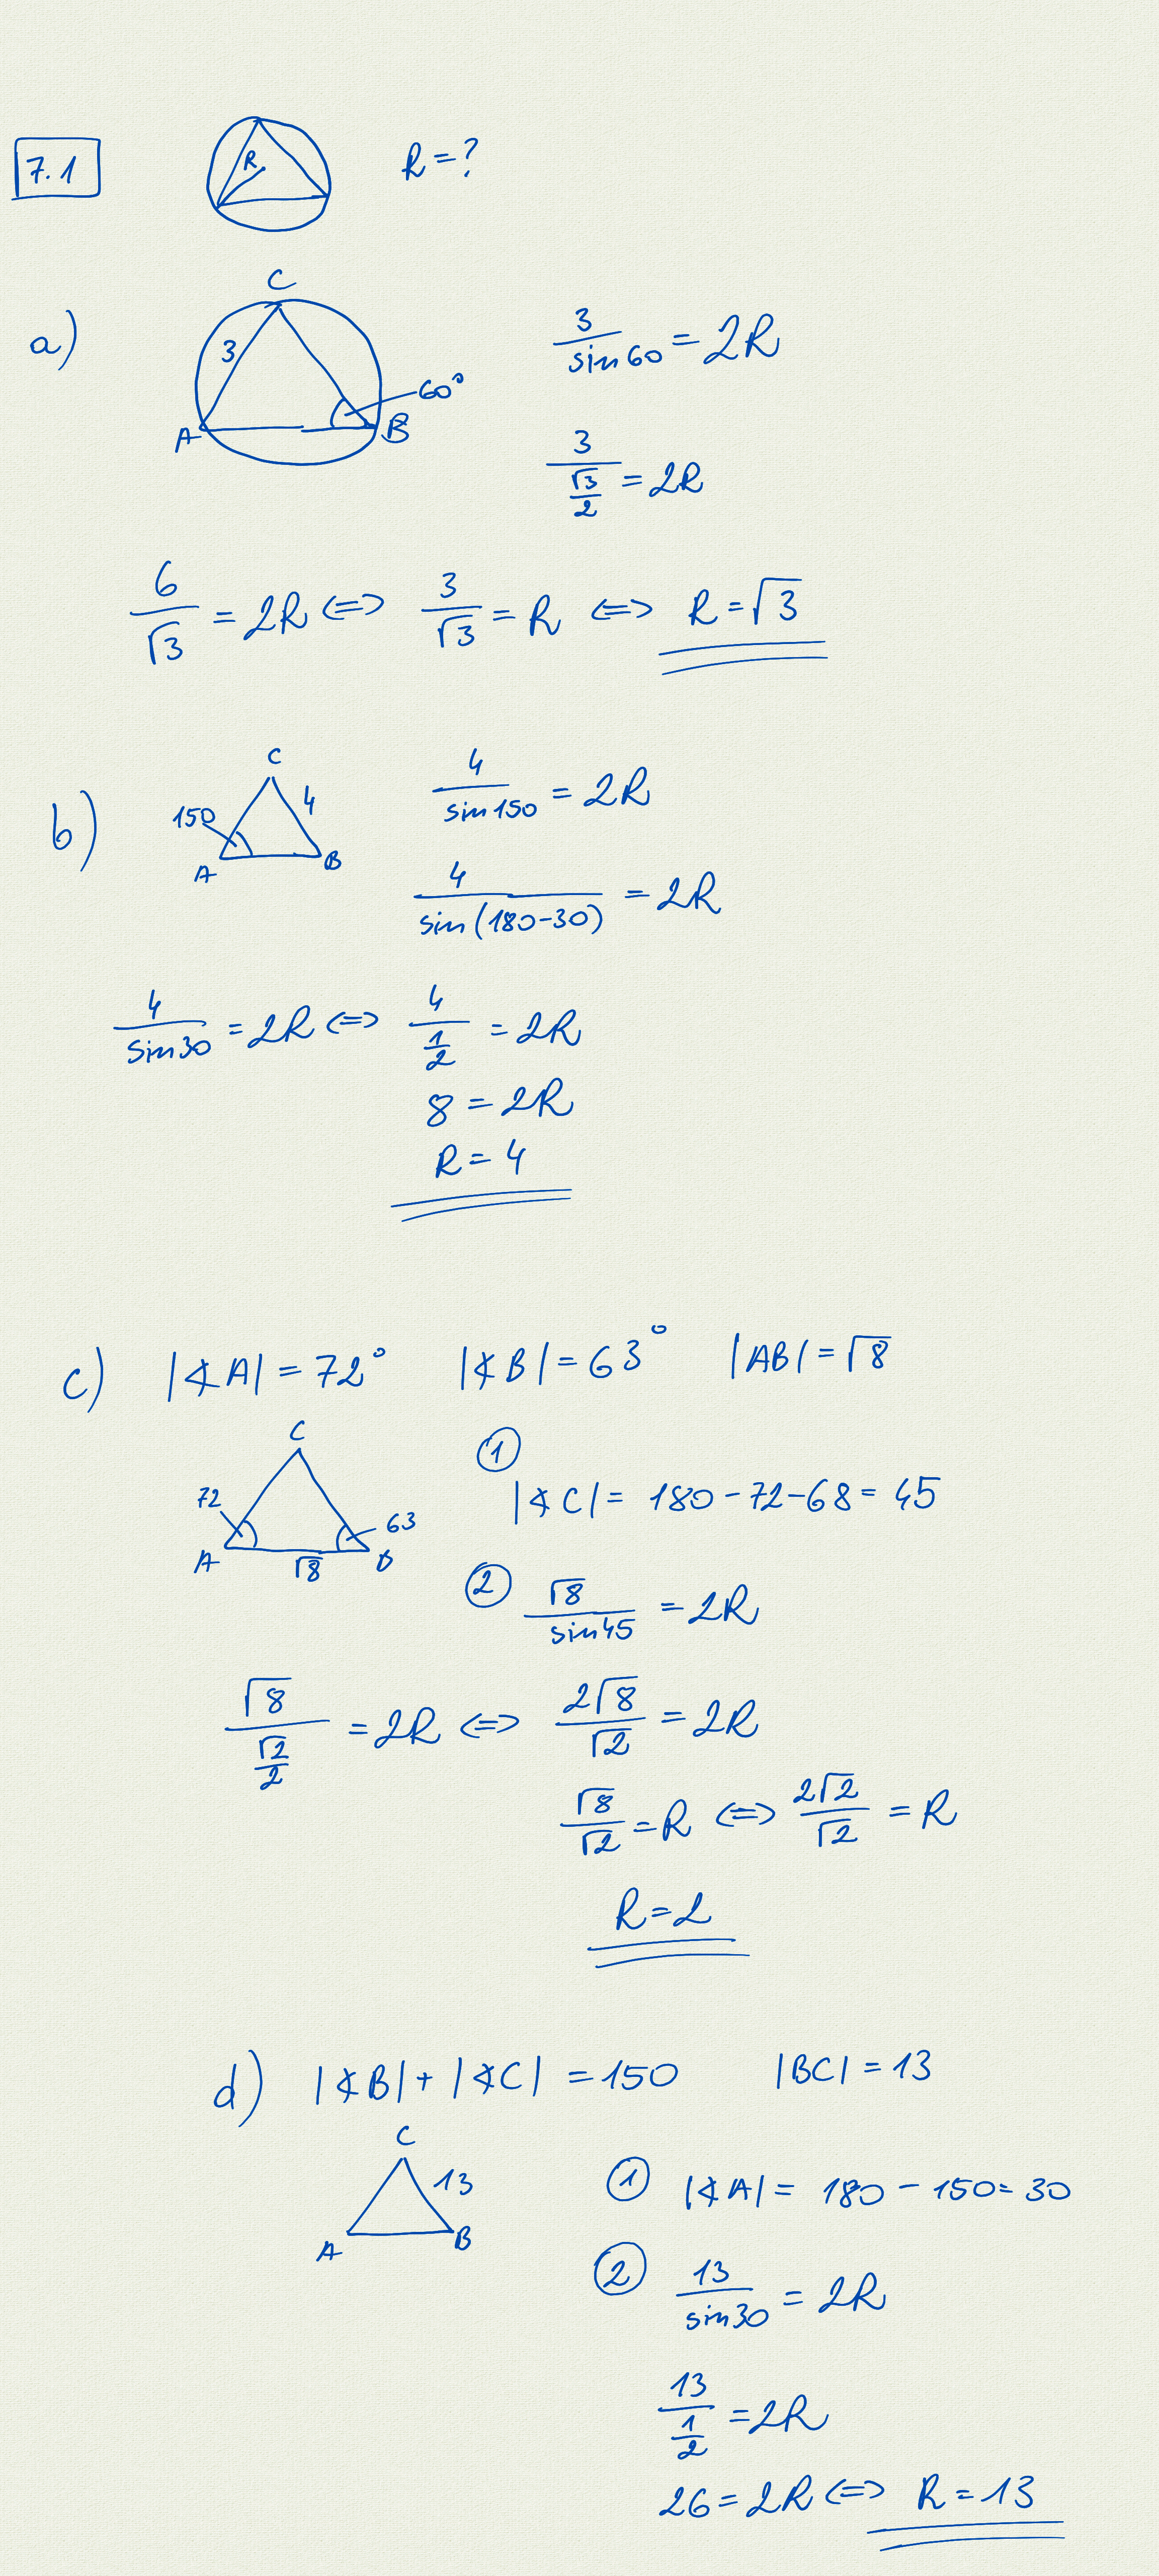 7.1
R
R = ?
a)
C
3
60°
A
B
3/sin60 = 2R
3/(√3/2) = 2R
6/√3 = 2R <=> 3/√3 = R <=> R = √3
b)
C
150
4
A
B
4/sin150 = 2R
4/sin(180-30) = 2R
4/sin30 = 2R <=> 4/(1/2) = 2R
8 = 2R
R = 4
c) |∢A| = 72° |∢B| = 63° |AB| = √8
C
72
63
A
√8
B
① |∢C| = 180 - 72 - 68 = 45
② √8/sin45 = 2R
√8/(√2/2) = 2R <=> 2√8/√2 = 2R
√8/√2 = R <=> 2√2/√2 = R
R = 2
d) |∢B| + |∢C| = 150 |BC| = 13
C
13
A
B
① |∢A| = 180 - 150 = 30
② 13/sin30 = 2R
13/(1/2) = 2R
26 = 2R <=> R = 13